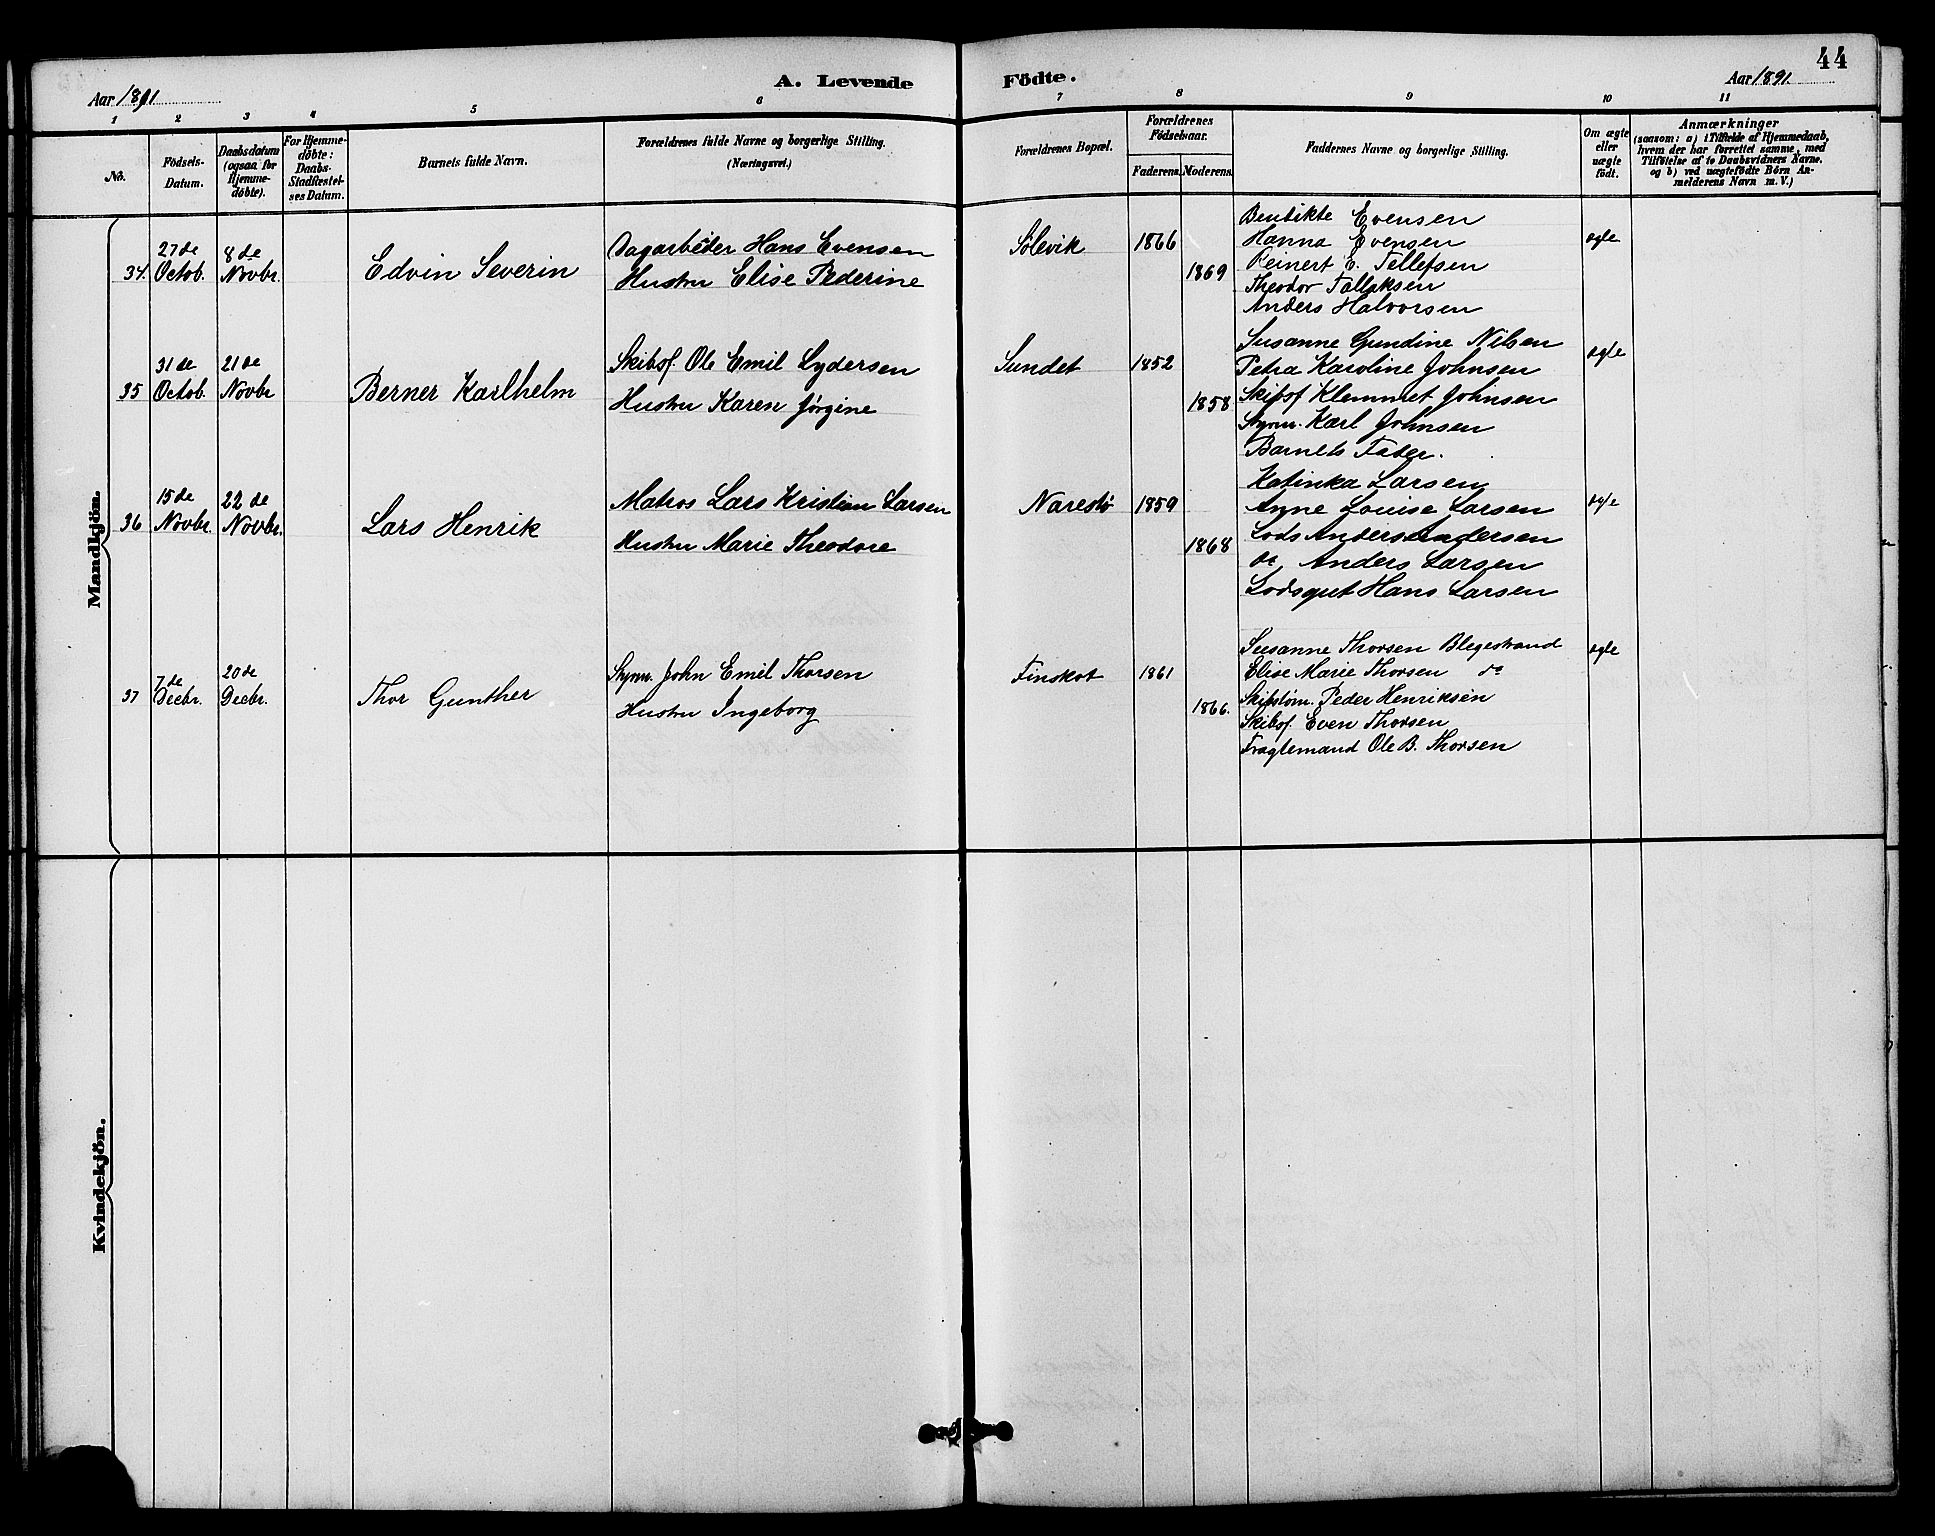 44
Aar 1891
A. Levende
Födte.
Aar 1891.
1 2 3 4 5 6 7 8 9 10 11
No.
Födsels-
Datum.
Daabsdatum
(ogsaa for
Hjemme-
döbte).
For Hjemme-
döbte:
Daabs-
Stadfæstel-
ses Datum.
Barnets fulde Navn.
Forældrenes fulde Navne og borgerlige Stilling.
(Næringsvei.)
Forældrenes Bopæl.
Forældrenes
Födselsaar.
Faderens. Moderens.
Faddernes Navne og borgerlige Stilling.
Om ægte
eller
uægte
födt.
Anmærkninger
(saasom: a) i Tilfælde af Hjemmedaab,
hvem der har forrettet samme, med
Tilföielse af to Daabsvidners Navne,
og b) ved uægtefödte Börn An-
melderens Navn m. V.)
Mandkjön.
34. 27de Octob. 8de Novbr. Edvin Severin
Dagarbeider Hans Evensen
Hustru Elise Pederine
Sølevik 1866 1869
Bendikte Evensen
Hanna Evensen
Reinert E. Tellefsen
Theodor Fallaksen
Anders Halvorsen
ægte
35 31de Octob. 21de Novbr Berner Karlhelm
Skibsf. Ole Emil Lydersen
Hustru Karen Jørgine
Sundet 1852 1858
Susanne Gundine Nilsen
Petra Karoline Johnsen
Skibsf Klemmet Johnsen
Styrm. Karl Johnsen
Barnets Fader.
ægte
36 15de Novbr. 22de Novbr. Lars Henrik
Matros Lars Kristian Larsen
Hustru Marie Theodore
Narestø 1859 1868
Katinka Larsen
Anne Louise Larsen
Lods Anders Andersen
do Anders Larsen
Lodsgut Hans Larsen
ægte
37 7de Decbr. 20de Decbr. Thor Gunther
Styrm. John Emil Thorsen
Hustru Ingeborg
Finskot 1861 1866.
Susanne Thorsen Blegestrand
Elise Marie Thorsen do
Skibstøm. Peder Henriksen
Skibsf. Even Thorsen
Fragtemand Ole B. Thorsen
ægte
Kvindekjön.